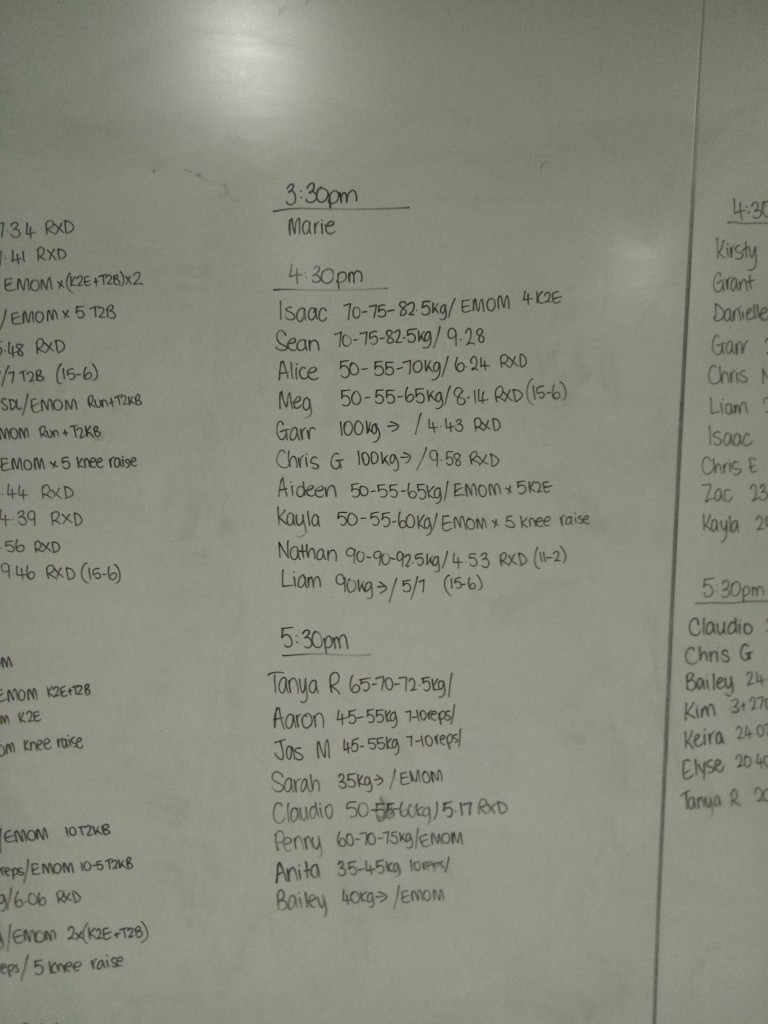 7.34 RXD
.41 RXD
EMOM x(K2E+T2B)x2
/EMOM x 5 T2B
.48 RXD
/7 T2B (15-6)
SDL/EMOM Run+T2KB
MOM Run+T2KB
EMOM x 5 knee raise
.44 RXD
4.39 RXD
.56 RXD
9.46 RXD (15-6)
m
EMOM K2E+T2B
m K2E
om knee raise
/EMOM 10T2KB
reps/EMOM 10-5T2KB
g/6.06 RXD
/EMOM 2x(K2E+T2B)
eps/5 knee raise
3:30pm
Marie
4:30pm
Isaac 70-75-82.5kg/EMOM 4K2E
Sean 70-75-82.5kg/9.28
Alice 50-55-70kg/6.24 RXD
Meg 50-55-65kg/8.14 RXD(15-6)
Garr 100kg→ /4.43 RXD
Chris G 100kg→/9.58 RXD
Aideen 50-55-65kg/EMOM x 5K2E
Kayla 50-55-60kg/EMOM x 5 knee raise
Nathan 90-90-92.5kg/4.53 RXD (11-2)
Liam 90kg→/5/7 (15-6)
5:30pm
Tanya R 65-70-72.5kg/
Aaron 45-55kg 7-10reps/
Jas M 45-55kg 7-10reps/
Sarah 35kg→/EMOM
Claudio 50-55-60kg/5.17 RXD
Penny 60-70-75kg/EMOM
Anita 35-45kg 10reps/
Bailey 40kg→/EMOM
4:30
Kirsty
Grant
Danielle
Garr
Chris N
Liam
Isaac
Chris E
Zac 23
Kayla 2
5:30pm
Claudio
Chris G
Bailey 24
Kim 3+27
Keira 24.0
Elyse 20.4
Tanya R 20